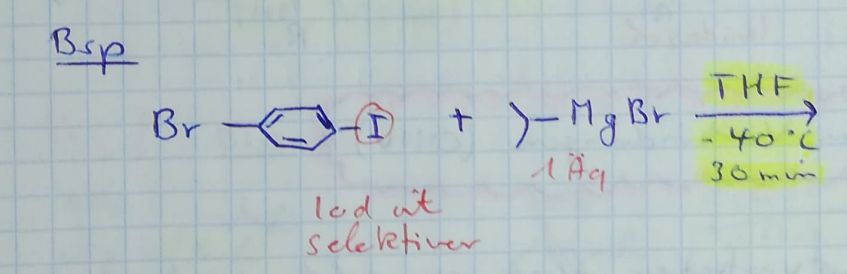 Bsp
Br I + MgBr THF
- 40 °C
1 Äq 30 min
Iod ist
selektiver